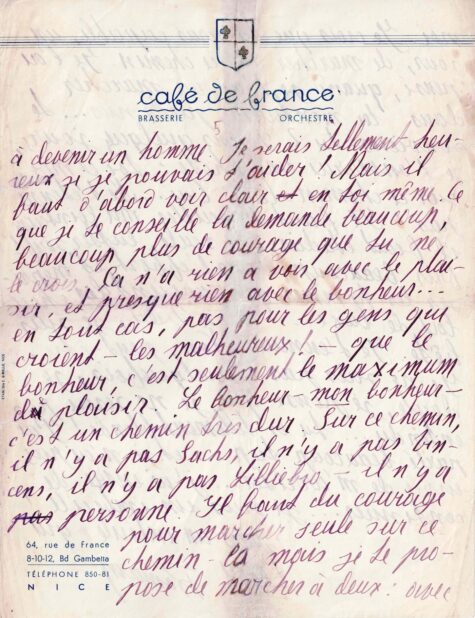 café de france
BRASSERIE ORCHESTRE
5
à devenir un homme. Je serais tellement heu-
reux si je pouvais t'aider! Mais il
faut d'abord voir clair et en toi même. Ce
que je te conseille la demande beaucoup,
beaucoup plus de courage que tu ne
le crois. Ça n'a rien à voir avec le plai-
sir, et presque rien avec le bonheur...
en tout cas, pas pour les gens qui
croient - les malheureux! - que le
bonheur, c'est seulement le maximum
du plaisir. Le bonheur - mon bonheur -
c'est un chemin très dur. Sur ce chemin,
il n'y a pas Sachs, il n'y a pas Vin-
cens, il n'y a pas - il n'y a
pas personne. Il faut du courage
pour marcher seule sur ce
chemin-là mais je te pro-
pose de marcher à deux: avec
64, rue de France
8-10-12, Bd Gambetta
TÉLÉPHONE 850-81
NICE